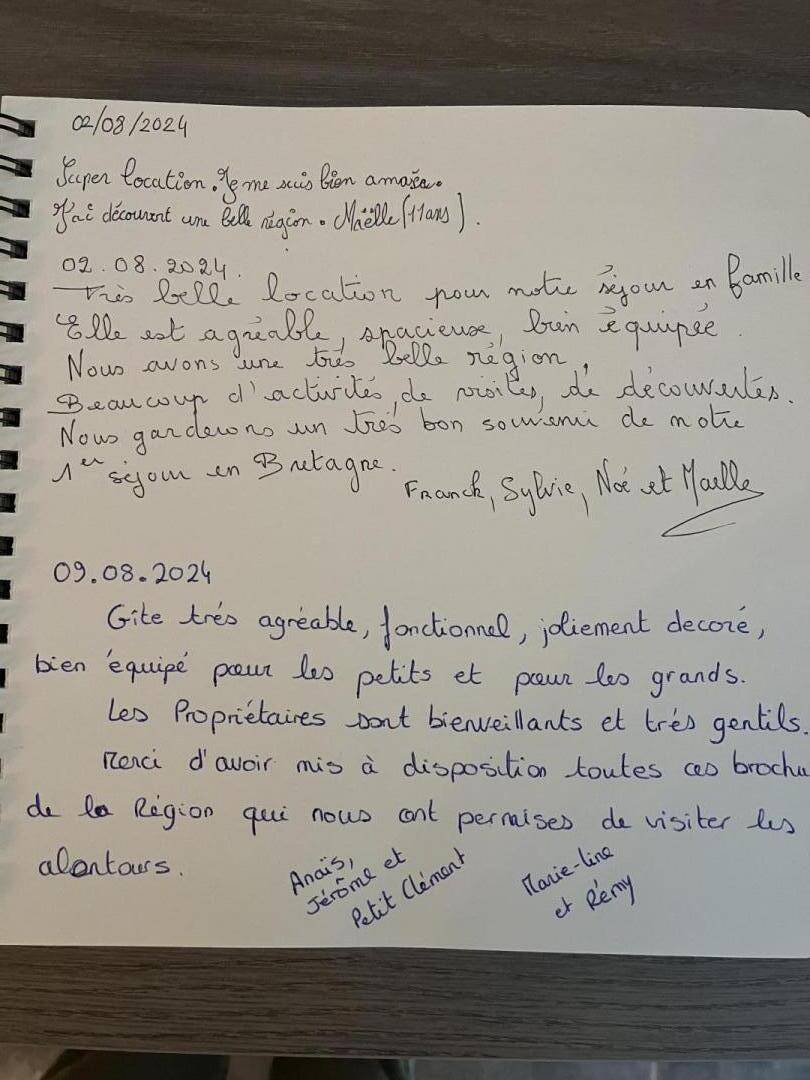 02/08/2024
Super location. Je me suis bien amusée.
J'ai découvert une belle région. Maëlle (11ans).
02.08.2024.
Très belle location pour notre séjour en famille
Elle est agréable, spacieuse, bien équipée.
Nous avons une très belle région.
Beaucoup d'activités, de visites, de découvertes.
Nous garderons un très bon souvenir de notre
1er séjour en Bretagne.
Franck, Sylvie, Noé et Maelle
09.08.2024
Gîte trés agréable, fonctionnel, joliement decoré,
bien équipé pour les petits et pour les grands.
Les Propriétaires sont bienveillants et trés gentils.
Merci d'avoir mis à disposition toutes ces brochu
de la Région qui nous ont permises de visiter les
alentours.
Anaïs,
Jérôme et
Petit Clément
Marie-line
et Rémy